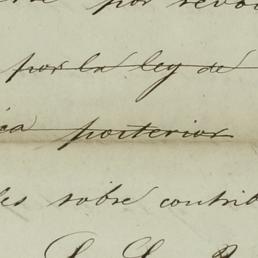 por revo
por la ley de
ca posterior
les sobre contrib